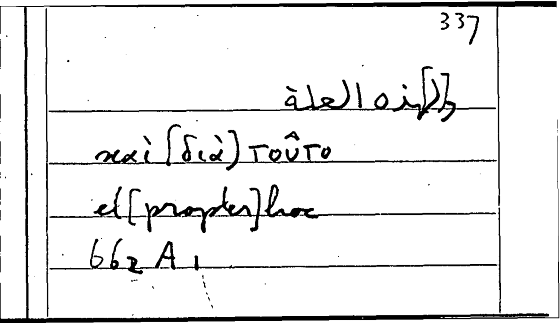 337
و[ل]هذه العلة
καὶ [διὰ] τοῦτο
et [propter] hoc
662 A 1